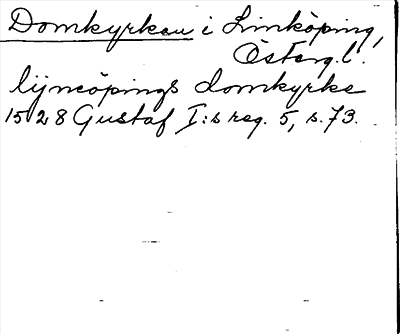 Domkyrkan i Linköping,
Österg.l.
lijncöpings domkyrke
1528 Gustaf I:s reg. 5, s. 73.